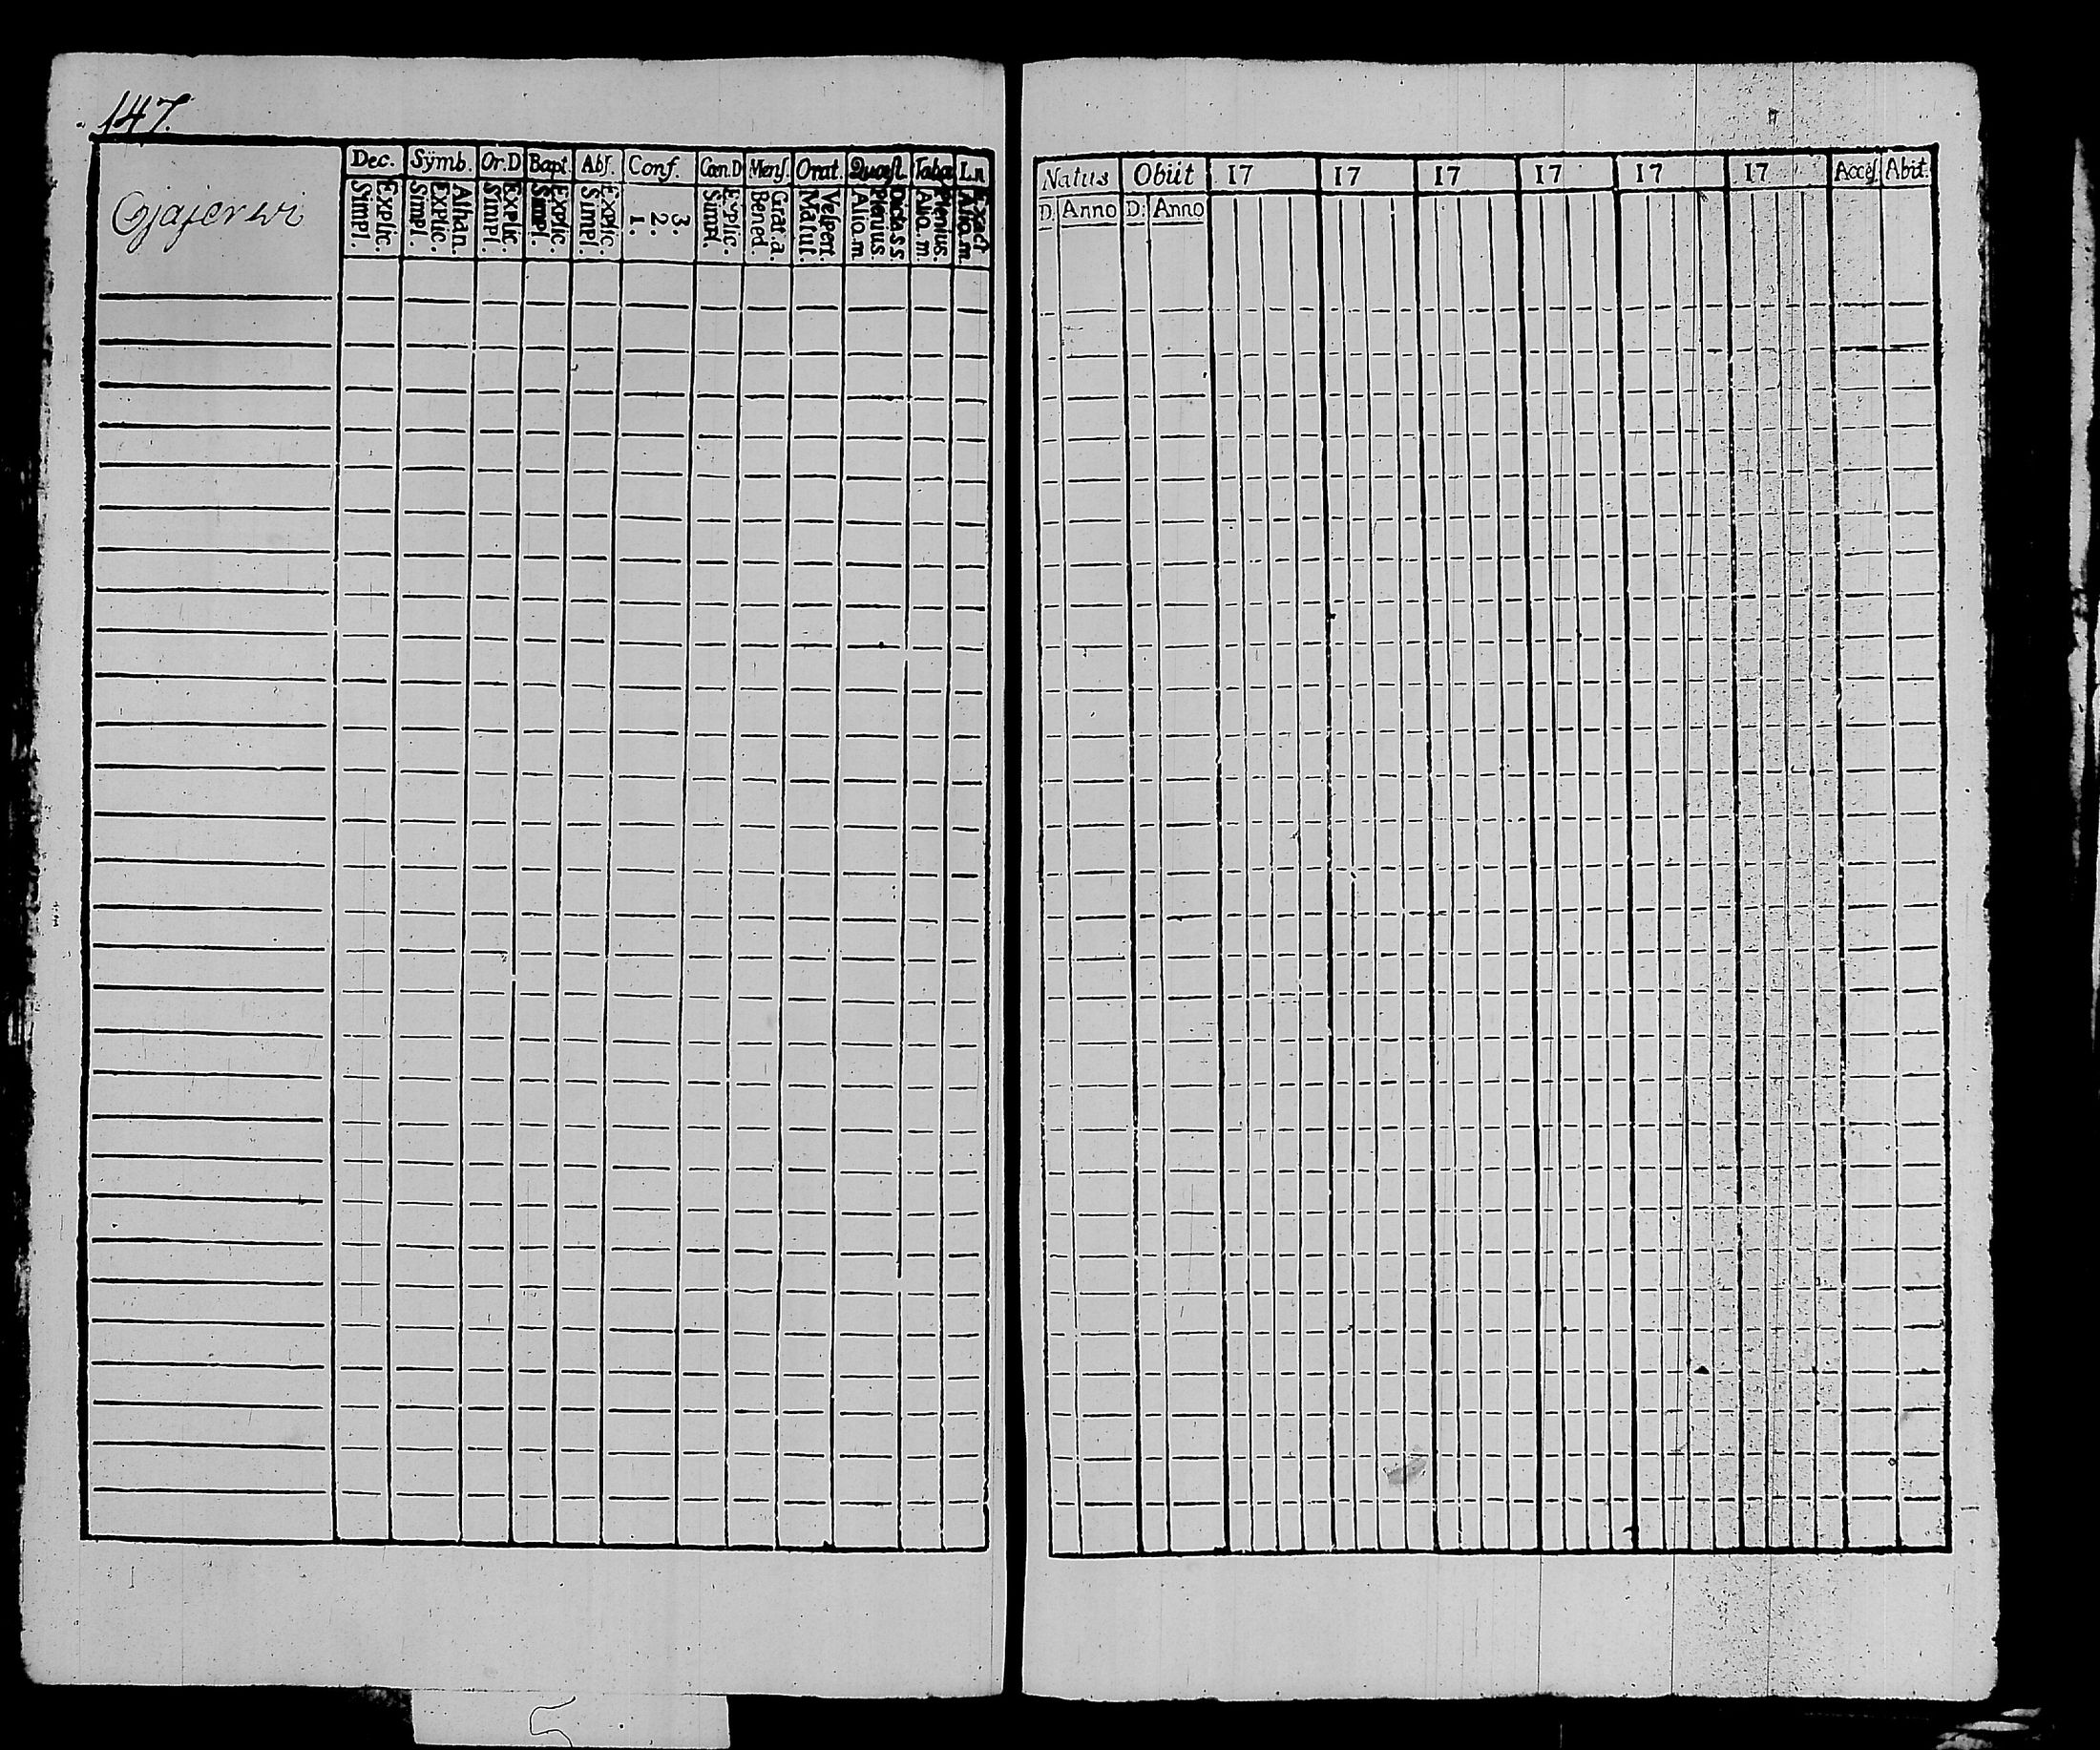 147.
Dec. Sÿmb. Or.D Bapt. Abſ. Conf. Cœn.D Menſ. Orat. Quæſt. Taba Ln
Gjajerwi
Simpl. Explic. Simpl. Explic. Athan. Simpl. Explic. Simpl. Explic. Simpl. Explic. 1. 2. 3. Simpl. Explic. Bened. Grat.a. Matut. Veſpert. Alio.m Plenius. Dicta s.s. Alio.m Plenius. Alio.m Exact
Natus Obiit 17 17 17 17 17 17 Acceſ. Abit.
D. Anno D. Anno